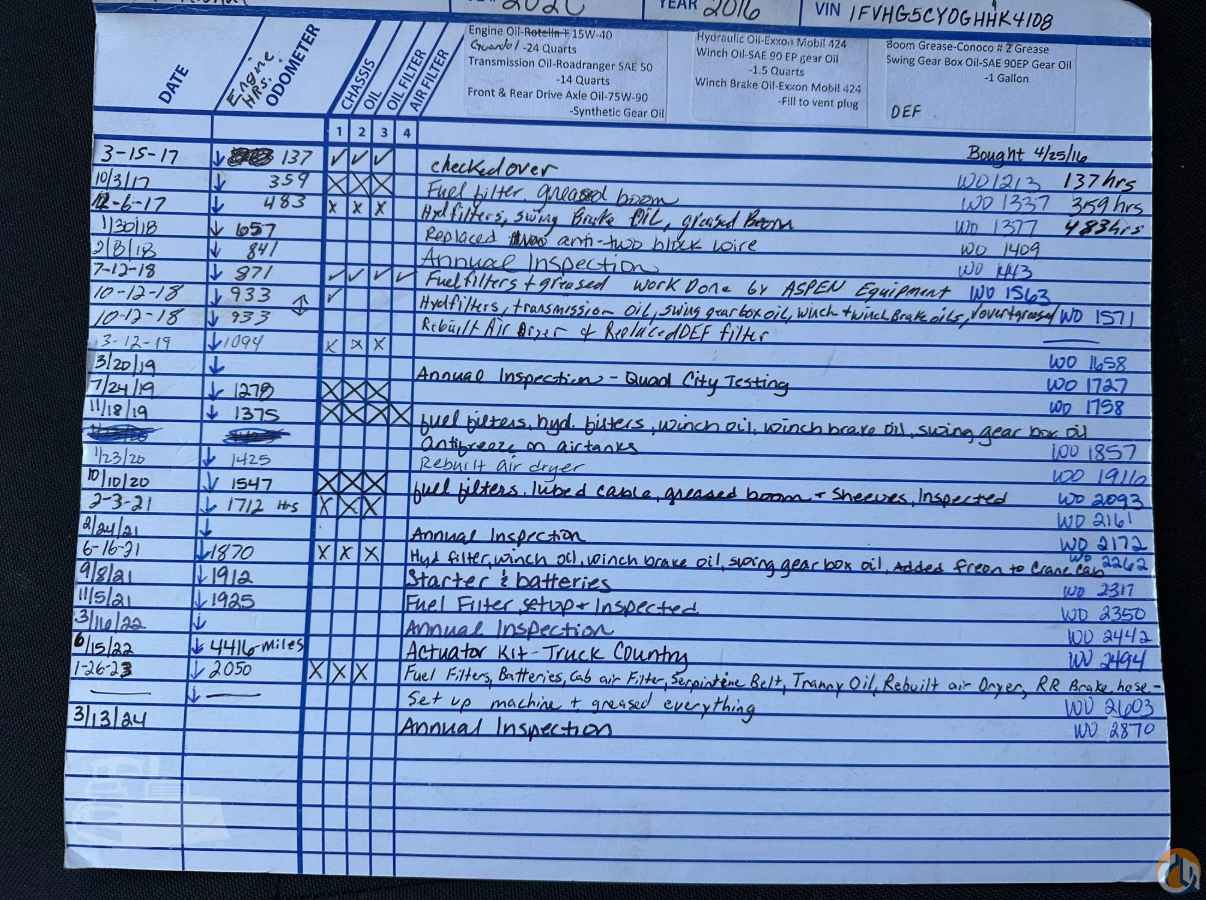 2020 YEAR 2016 VIN 1FVHG5CY0GHHK4108
DATE
Engine HRS. ODOMETER
CHASSIS
OIL
OIL FILTER
AIR FILTER
Engine Oil-Rotella t 15W-40
Guardol -24 Quarts
Transmission Oil-Roadranger SAE 50
-14 Quarts
Front & Rear Drive Axle Oil-75W-90
-Synthetic Gear Oil
Hydraulic Oil-Exxon Mobil 424
Winch Oil-SAE 90 EP gear Oil
-1.5 Quarts
Winch Brake Oil-Exxon Mobil 424
-Fill to vent plug
Boom Grease-Conoco # 2 Grease
Swing Gear Box Oil-SAE 90EP Gear Oil
-1 Gallon
DEF
1 2 3 4
3-15-17 ↓ 137 ✓ ✓ ✓ checked over Bought 4/25/16
10/3/17 ↓ 359 X X X Fuel filter, greased boom WO 1213 137 hrs
12-6-17 ↓ 483 X X X Hyd filters, swing Brake Oil, greased Boom WO 1337 359 hrs
1/30/18 ↓ 657 Replaced anti-two block wire WO 1377 483 hrs
2/8/18 ↓ 841 Annual Inspection WO 1409
7-12-18 ↓ 871 ✓ ✓ ✓ ✓ Fuel filters + greased Work Done by ASPEN Equipment WO 1443
10-12-18 ↓ 933 ✓ Hydfilters, transmission oil, swing gearbox oil, winch + winch Brake oils, WO 1563
10-12-18 ↓ 933 Rebuilt Air Dryer & Replaced DEF filter WO 1571
3-12-19 ↓ 1094 X X X
3/20/19 ↓ Annual Inspection - Quad City Testing WO 1658
7/24/19 ↓ 1278 X X X WO 1727
11/18/19 ↓ 1375 X X X X fuel filters, hyd. filters, winch oil, winch brake oil, swing gear box oil WO 1758
Antifreeze in airtanks
1/23/20 ↓ 1425 Rebuilt air dryer WO 1857
10/10/20 ↓ 1547 X X X fuel filters, lubed cable, greased boom + Sheeves, Inspected WO 1916
2-3-21 ↓ 1712 Hrs X X X WO 2093
2/24/21 ↓ Annual Inspection WO 2161
6-16-21 ↓ 1870 X X X Hyd filter, winch oil, winch brake oil, swing gear box oil, Added freon to Crane Cab WO 2172
9/8/21 ↓ 1912 Starter & batteries WO 2262
11/5/21 ↓ 1925 Fuel Filter, setup + Inspected WO 2317
3/16/22 ↓ Annual Inspection WO 2350
6/15/22 ↓ 4416-Miles Actuator Kit - Truck Country WO 2442
1-26-23 ↓ 2050 X X X Fuel Filters, Batteries, Cab air Filter, Serpintene Belt, Tranny Oil, Rebuilt air Dryer, RR Brake hose - WO 2494
↓ Set up machine + greased everything WO 2603
3/13/24 Annual Inspection WO 2870